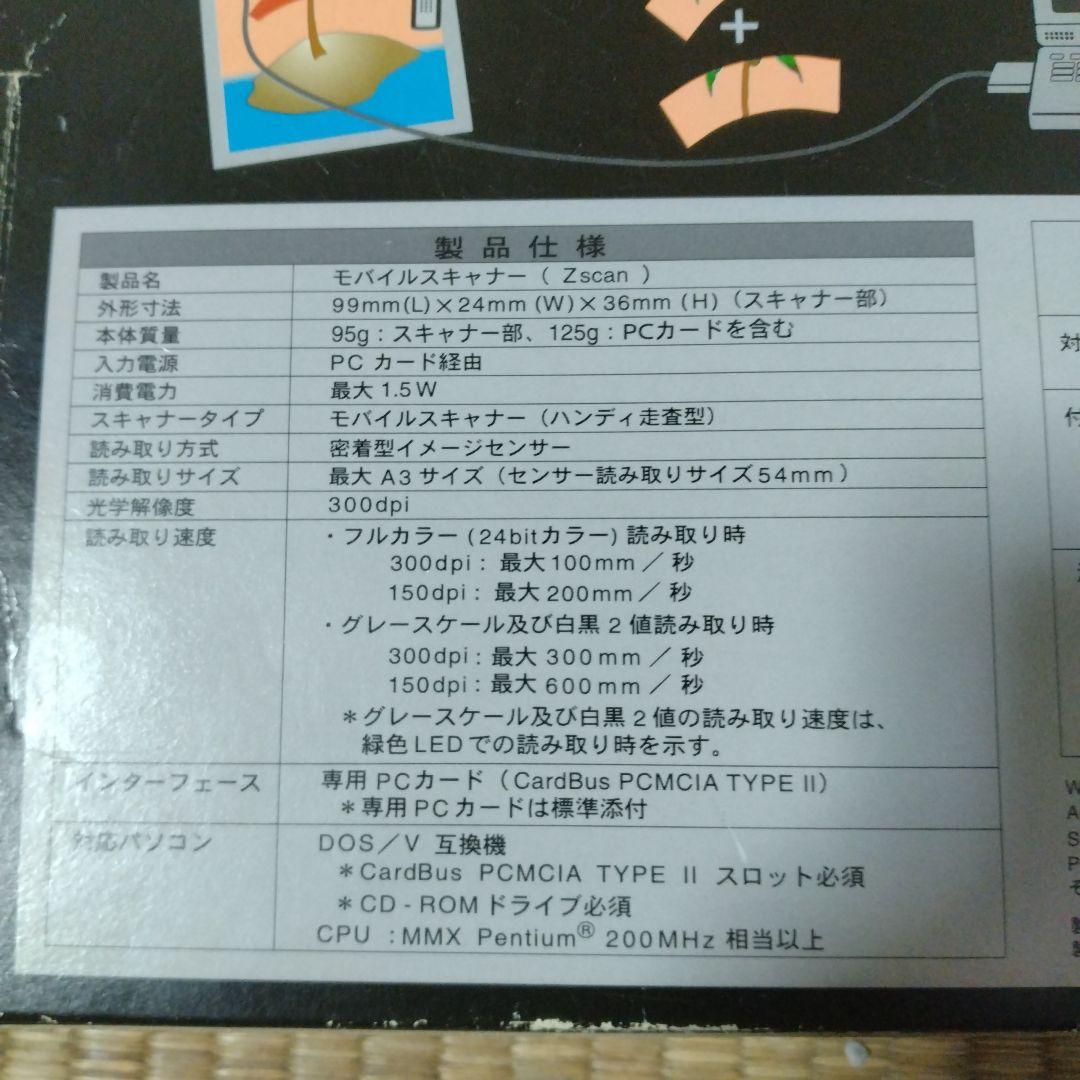 製品仕様
製品名 モバイルスキャナー（ Zscan ）
外形寸法 99mm(L)×24mm (W)×36mm (H)（スキャナー部）
本体質量 95g：スキャナー部、125g：PCカードを含む
入力電源 PC カード経由
消費電力 最大 1.5W
スキャナータイプ モバイルスキャナー（ハンディ走査型）
読み取り方式 密着型イメージセンサー
読み取りサイズ 最大 A3 サイズ（センサー読み取りサイズ54mm）
光学解像度 300dpi
読み取り速度 ・フルカラー (24bitカラー) 読み取り時
300dpi： 最大100mm ／ 秒
150dpi： 最大 200mm ／ 秒
・グレースケール及び白黒 2 値読み取り時
300dpi： 最大 300mm ／ 秒
150dpi： 最大 600mm ／ 秒
＊グレースケール及び白黒 2 値の読み取り速度は、
緑色LEDでの読み取り時を示す。
インターフェース 専用 PCカード（CardBus PCMCIA TYPE II）
＊専用PCカードは標準添付
対応パソコン DOS／V 互換機
＊CardBus PCMCIA TYPE II スロット必須
＊CD-ROMドライブ必須
CPU ：MMX Pentium® 200MHz 相当以上
対
付
W
A
S
P
そ